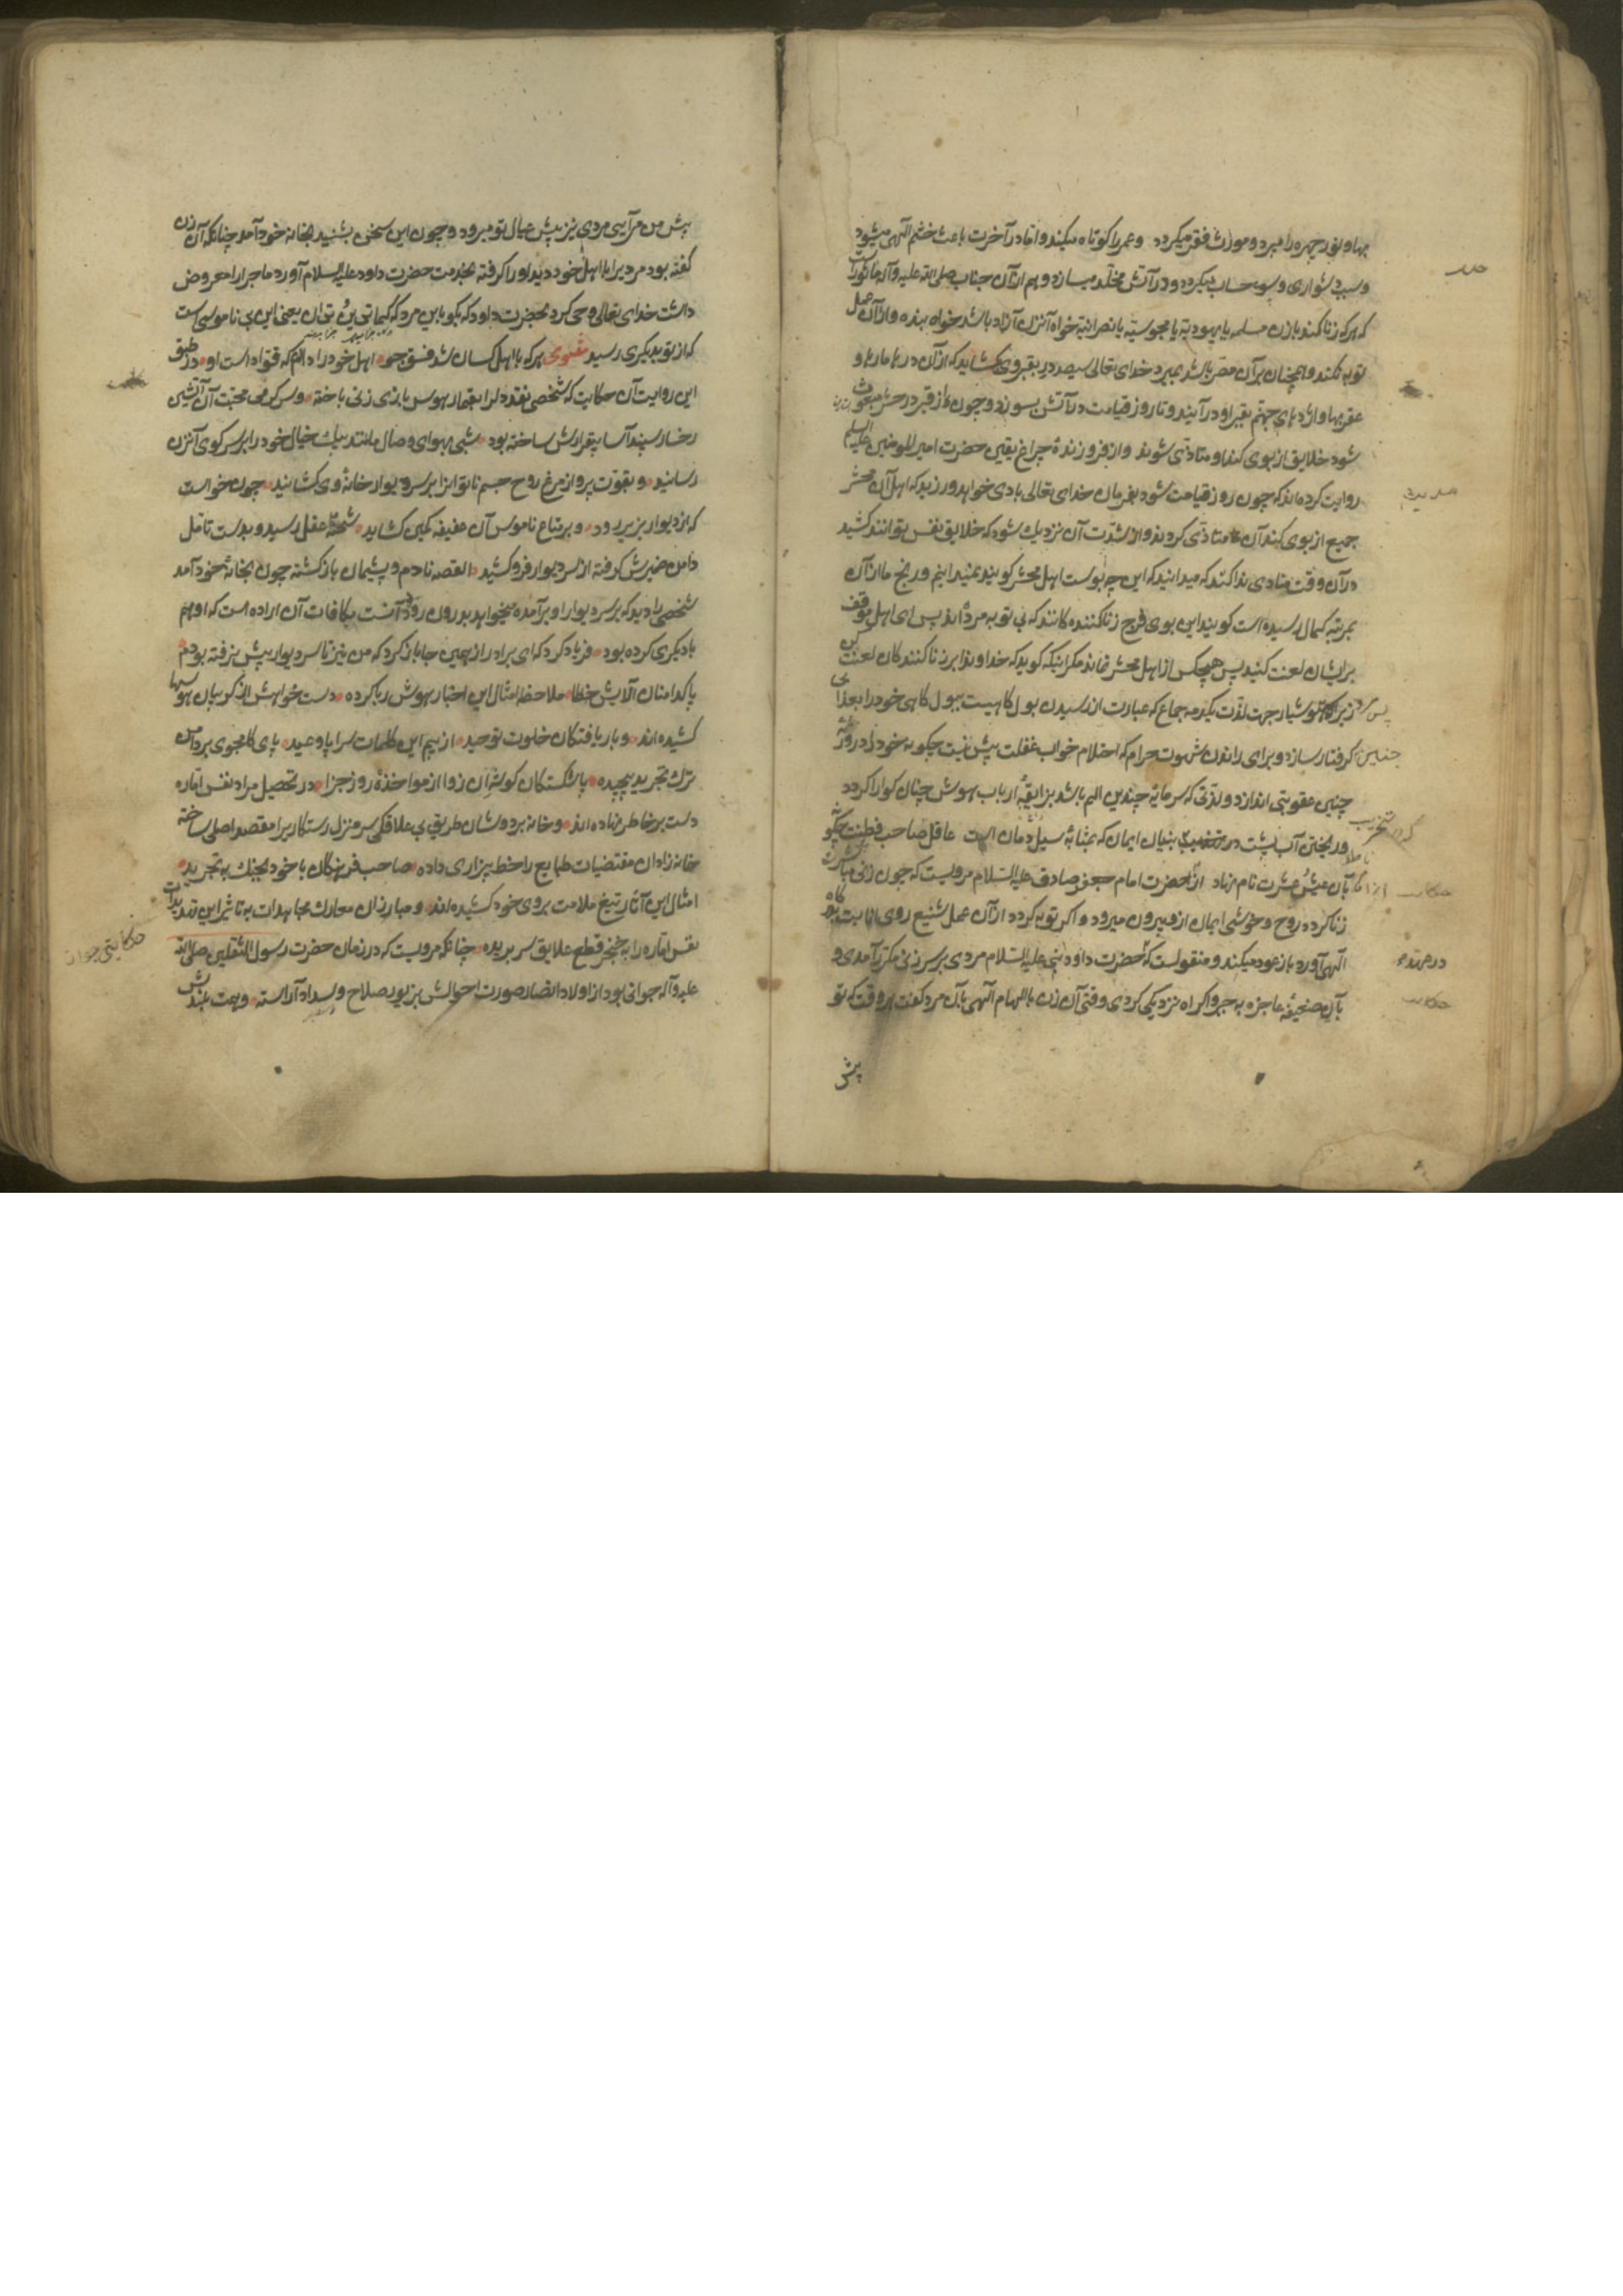 بها و نور چهره را میبرد و مورث فقر میگردد و عمر را کوتاه میکند و اما در آخرت باعث خشم الهی میشود
و سبب دشواری و سوء حساب میگردد و در آتش مخلد میسازد و هم از آن جناب صلی الله علیه و آله ماثور است
که هر که زنا کند با زن مسلمه یا یهودیة یا مجوسیة یا نصرانیة خواه آنزن آزاد باشد خواه بنده و از آن عمل
توبه نکند و همچنان بر آن مصر باشد بمیرد خدای تعالی سیصد در بقبر وی گشاید که از آن درها مارها و
عقربها و اژدهای جهنم بقبر او در آیند و تا روز قیامت در آتش بسوزد و چون از قبر در حشر مبعوث
شود خلایق از بوی گند او متاذی شوند و از فروزندهٔ چراغ یقین حضرت امیر المومنین علیه السلم
روایت کرده‌اند که چون روز قیامت شود بفرمان خدای تعالی بادی خواهد ورزید که اهل آن محشر
جمیع از بوی گند آن متاذی گردند و از شدت آن نزدیك شود که خلایق نفس نتوانند کشید
در آن وقت منادی ندا کند که میدانید که این چه بوست اهل محشر گویند نمیدانیم و رنج ما از آن
بمرتبه کمال رسیده است گویند این بوی فرج زنا کننده کانند که بی توبه مرده‌اند پس ای اهل موقف
بر ایشان لعنت کنید پس هیچکس از اهل محشر نماند مگر اینکه گوید که خداوندا بر زنا کنندگان لعنت کن
پس مرد زیرك هوشیار جهت لذت یکدمه جماع که عبارت از رسیدن بول گاهیست ببول گاهی خود را بعذابی
چنین گرفتار سازد و برای راندن شهوت حرام که احتلام خواب غفلت بیش نیست چگونه خود را در روز
چنین عقوبتی اندازد و لذتی که سرمایهٔ چندین الم باشد بذایقهٔ ارباب هوش چنان گوارا گردد
و ریختن آب پشت در تخریب بنیان ایمان که بمثابهٔ سیل دمان است عاقل صاحب فطنت چگو
بآن عیش عشرت نام نهاد از حضرت امام جعفر صادق علیه السلام مرویست که چون زنی مباشرت
زنا گردد روح و خوشی ایمان از و بیرون میرود و اگر توبه گردد از آن عمل شنیع روی انابت بدرگاه
الهی آورد باز عود میکند و منقولست که حضرت داود نبی علیه السلام مردی بر سر زنی مکرر آمدی و
بآن ضعیفهٔ عاجزه به جبر و اکراه نزدیکی کردی وقتی آن زن بالهام الهی بآن مرد گفت هر وقت که تو
پیش
پیش من می‌آیی مردی نیز پیش عیال تو میرود و چون این سخن بشنید بخانه خود آمد چنانکه آن زن
گفته بود مردیرا با اهل خود دید او را گرفته بخدمت حضرت داود علیه السلام آورد ماجرا را معروض
داشت خدای تعالی وحی کرد بحضرت داود که بگو باین مرد که کما تدین تدان یعنی این بی ناموسی است
که از تو بدیگری رسید مثنوی هر که با اهل کسان شد فسق جو اهل خود را دان که قواد است او در طبق
این روایت آن حکایت که شخصی نقد دل را بقمار هوس با نرد زنی باخته و سر گرمی محبت آن آتشین
رخسار سپند آسا بیقرارش ساخته بود شبی بهوای وصال مانند پیك خیال خود را بر سر کوی آنزن
رسانید و بقوت پرواز مرغ روح جسم ناتوانرا بر سر دیوار خانهٔ وی کشانید چون خواست
که از دیوار بزیر رود و بر متاع ناموس آن عفیفه کمین گشاید شحنهٔ عقل رسید و بدست تامل
دامن ضمیرش گرفته از سر دیوار فرو کشید القصه نادم و پشیمان باز گشته چون بخانهٔ خود آمد
شخصی را دید که بر سر دیوار او بر آمده میخواهد بدرون رود دانست مکافات آن اراده است که او هم
با دیگری کرده بود فریاد کرد که ای برادر از همین جا باز گرد که من نیز تا سر دیوار بیش نرفته بودم
پاکدامنان آلایش خطا ملاحظه امثال این اخبار هوش ربا کرده دست خواهش از گریبان هوسها
کشیده‌اند و بار یافتگان خلوت توحید از بیم این کلمات سراپا وعید پای کامجوی بردامن
ترك تجرید پیچیده پا شکستگان گوشهٔ انزوا از مواخذهٔ روز جزا در تحصیل مراد نفس اماره
دست بر خاطر نهاده‌اند و خانه بر دوشان طریق بی علاقگی سر منزل رستگاریرا مقصد اصلی ساخته
خانه زادان مقتضیات طبایع را خط بیزاری داده صاحب فرهنگان با خود بجنك به تجرید
امثال این آثار تیغ ملامت بروی خود کشیده‌اند و مبارزان معارك مجاهدات به تاثیر این تهدیدات
نفس اماره را به خنجر قطع علایق سر بریده چنانکه مرویست که در زمان حضرت رسول الثقلین صلی الله
علیه و آله جوانی بود از اولاد انصار صورت احوالش بزیور صلاح و سداد آراسته و همت بلندش
حکایتی جوان